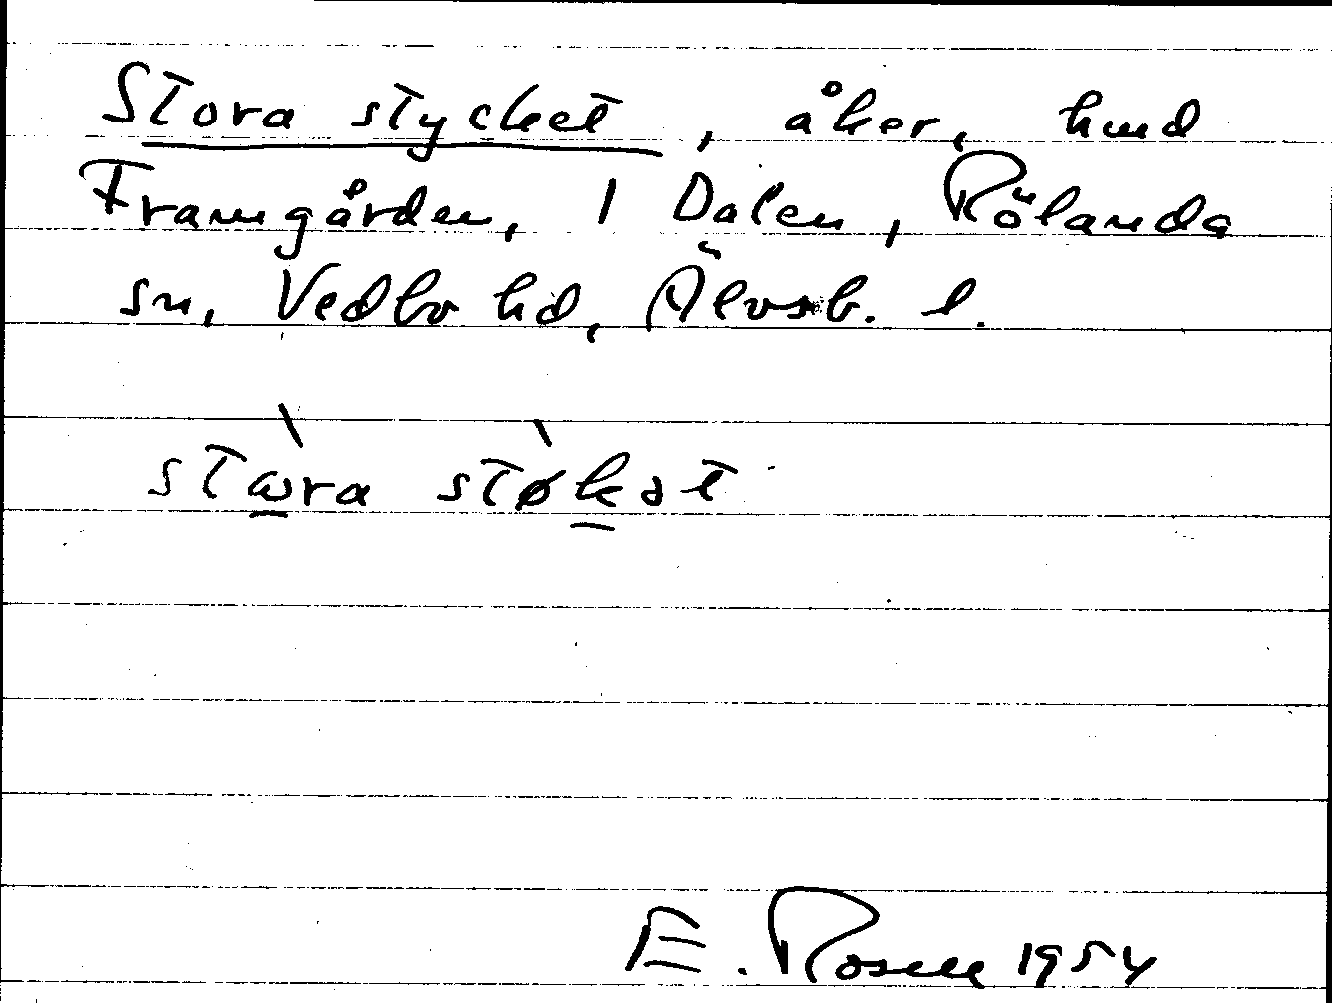 Stora stycket, åker, hmd
Framgården, 1 Dalen, Rölanda
sn, Vedbo hd, Älvsb. l.
stɷ̀ra stø̀kət
E. Rosell 1954